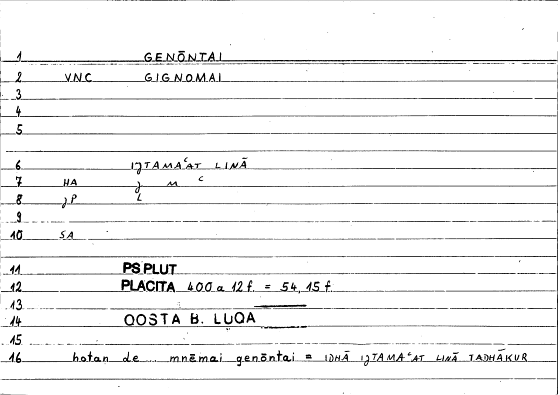 1 GENŌNTAI
2 VNC GIGNOMAI
3
4
5
6 IJTAMAᶜAT LINĀ
7 HA J M C
8 JP L
9
10 SA
11 PS PLUT
12 PLACITA 400 a 12 f. = 54, 15 f.
13
14 QOSTA B. LUQA
15
16 hotan de .. mnēmai genōntai = IDHĀ IJTAMAᶜAT LINĀ TADHĀKUR